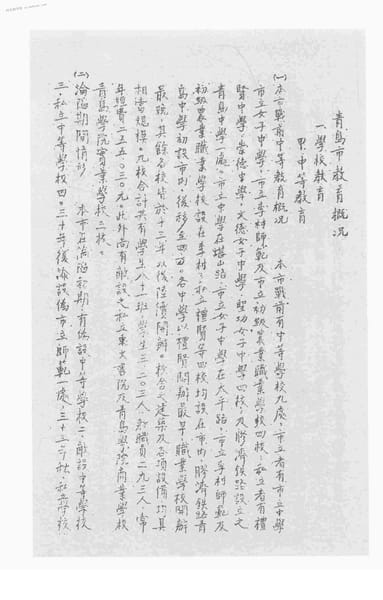 青島市教育概況
一、學校教育
甲、中等教育
(一)本市戰前中等教育概況 本市戰前有中等學校九處，市立者有市立中學
市立女子中學，市立李村師範及市立初級農業職業學校四校，私立者有禮
賢中學，崇德中學，文德女子中學，聖功女子中學四校，及膠濟鐵路設立之
青島中學一處。市立中學在 山路，市立女子中學在太平路，市立李村師範及
初級農業職業學校設在李村，私立禮賢等四校均設在市內，膠濟鐵路青
島中學初設市內，後移至四方。各中學以禮賢開辦最早，職業學校開辦
最晚，其餘各校皆於十三年以後陸續開辦。校舍之建築及各項設備均具
相當規模，九校合計共有學生八十一班，學生三二〇三人，教職員二九三人，常
年經費二五五〇三〇元。此外尚有敵設之私立東文書院及青島學院商業學校
青島學院實業學校三校。
(二)淪陷期間情形 本市在淪陷初期，有偽設中等學校二，敵設中等學校
三，私立中等學校四。三十年後添設偽市立師範一處，三十三年秋，私立學校